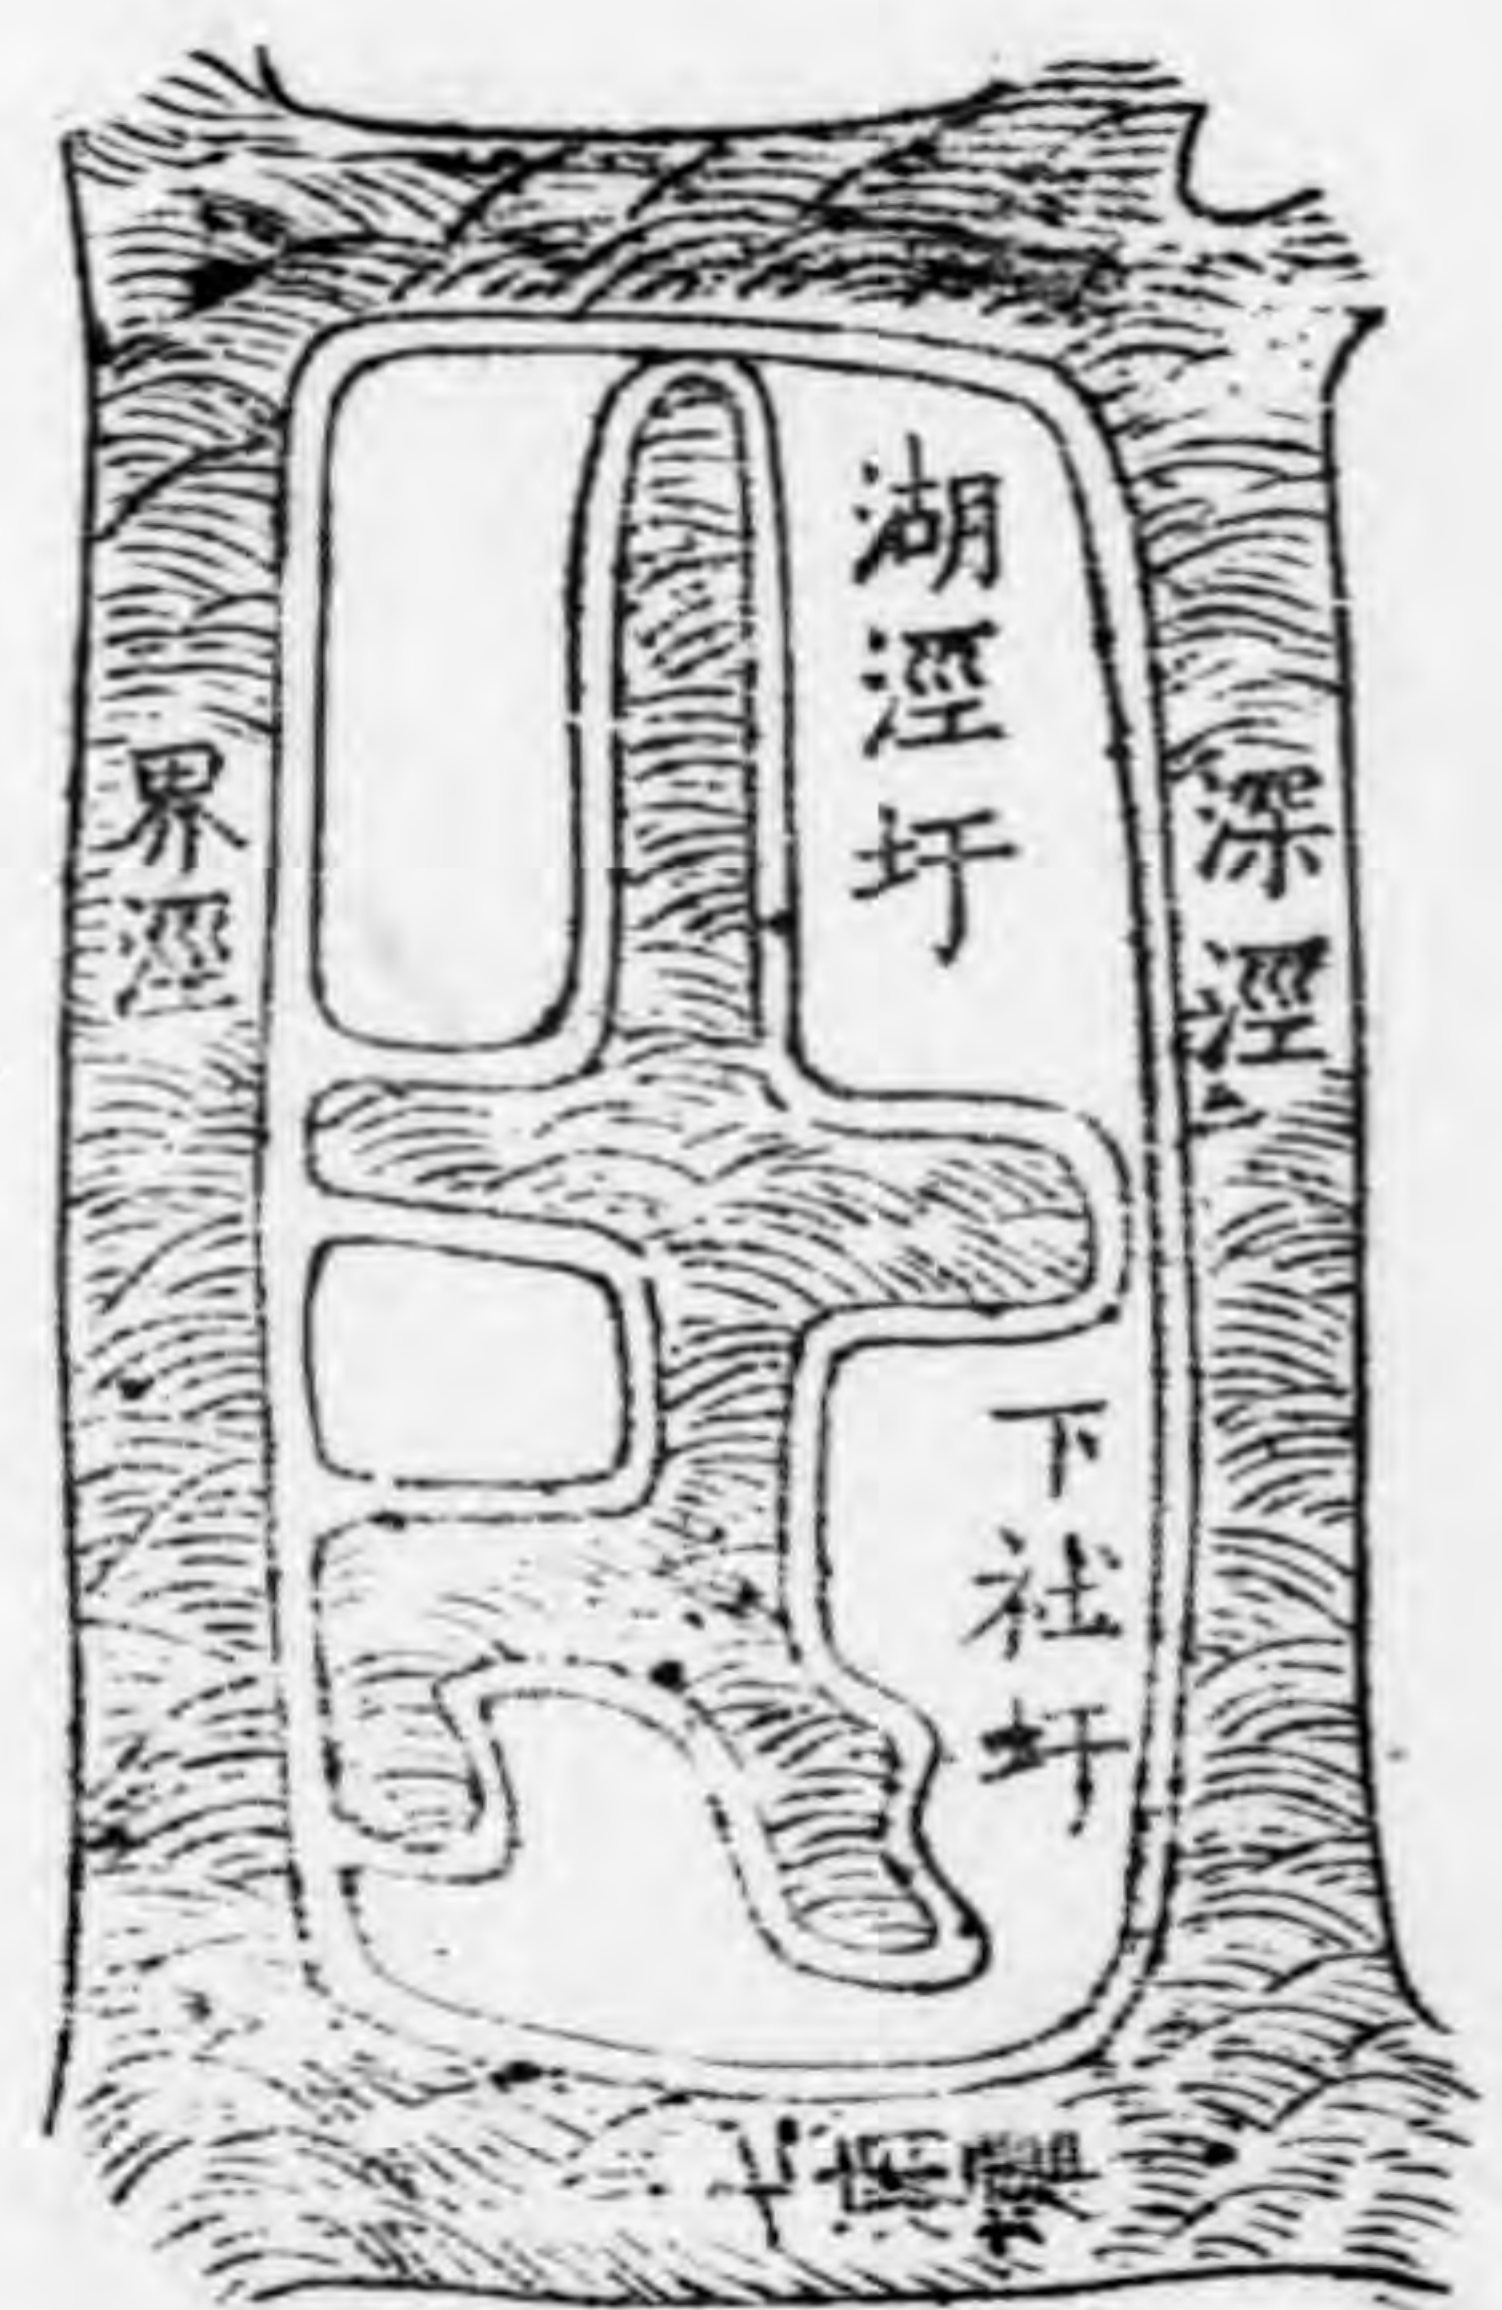 湖涇圩
深涇
界涇
下社圩